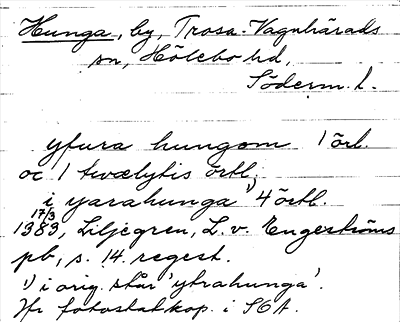 Hunga, by, Trosa-Vagnhärads
sn, Hölebo hd,
Söderm. l.
yfura hungom 1 örl.
oc 1 twælytis örtl.
i yarahunga 1) 4 örtl.
17/3
1383, Liljegren, L. v. Engeströms
pb, s. 14. regest.
1) i orig. står 'ytrahunga'.
Jfr fotostatkop. i SOA.